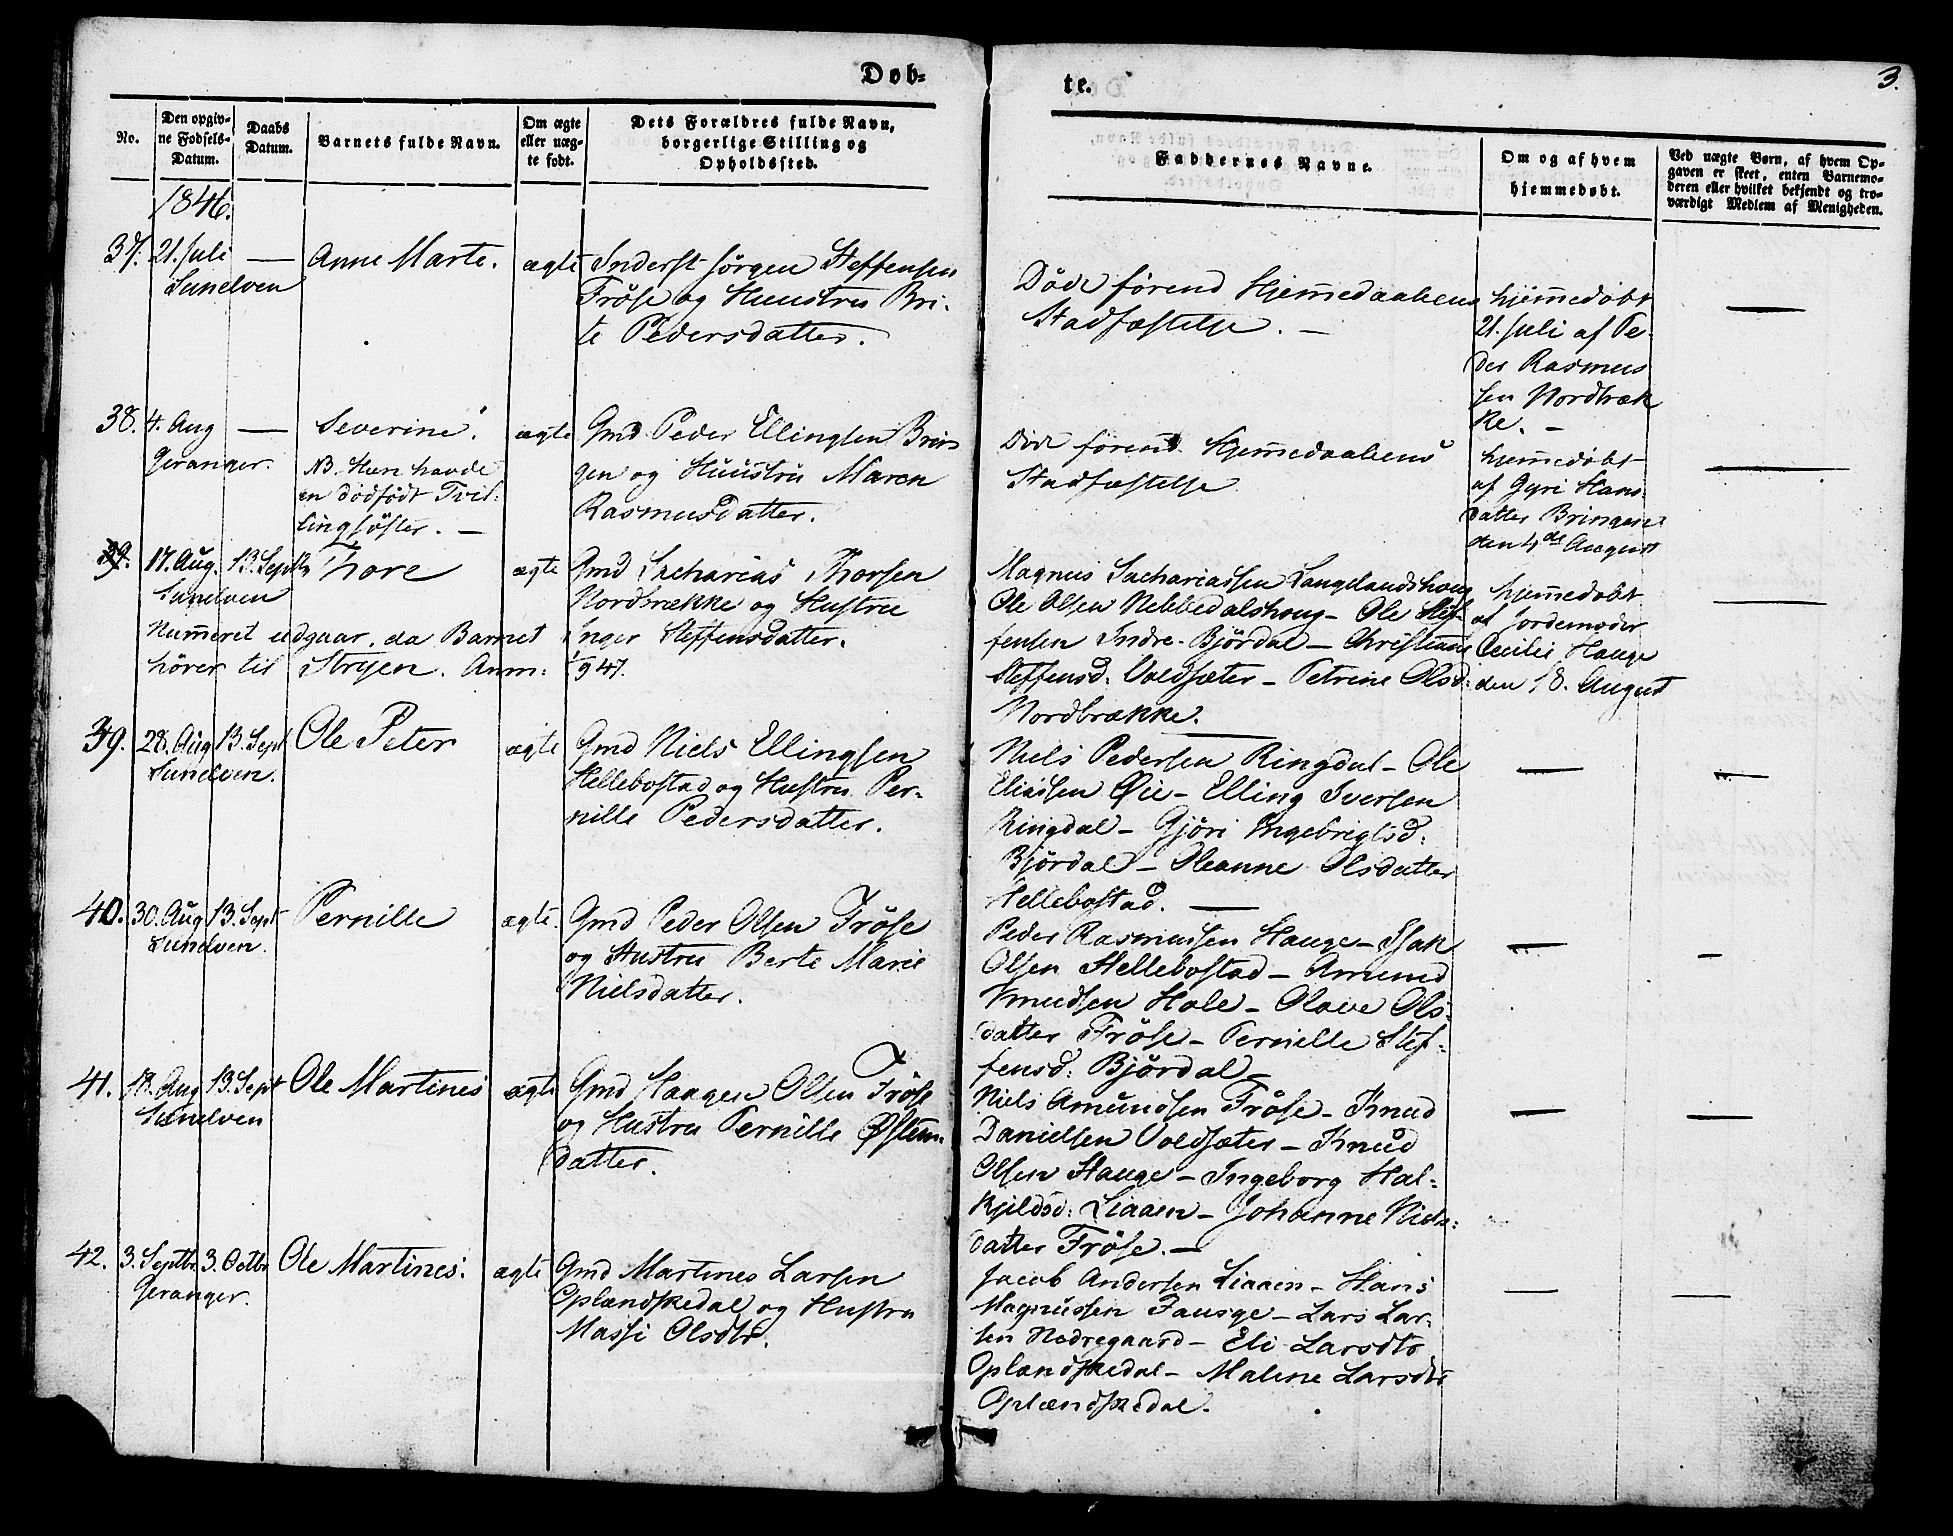 Døb-
te.
3.
No.
Den opgiv-
ne Fødsels-
Datum.
Daabs
Datum.
Barnets fulde Navn.
Om ægte
eller uæg-
te født.
Dets Forældres fulde Navn,
borgerlige Stilling og
Opholdssted.
Faddernes Navne.
Om og af hvem
hjemmedøbt.
Ved uægte Børn, af hvem Op-
gaven er skeet, enten Barnemo-
deren eller hvilket bekjendt og tro-
værdigt Medlem af Menigheden.
1846.
37. 21. Juli —
Sunelven
Anne Marte.
ægte
Inderst Jörgen Steffensen
Fröse og Huustru Bri-
te Pedersdatter.
Döde förend Hjem̄edaabens
Stadfæstelse. —
hjem̄edöbt
21. Juli af Pe-
der Rasmus
sen Nordbræk
ke. —
—
38. 4. Aug —
Geranger.
Severine.
NB. Hun havde
en dödfödt Tvil-
lingsöster. —
ægte
Gmd Peder Ellingsen Brin-
gen og Huustru Maren
Rasmusdatter.
Död förend Hjem̄edaabens
Stadfæstelse
hjem̄edöbt
af Gyri Hans-
datter Bringen
den 4de August
—
39. 17. Aug. 13. Septbr
Sunelven
Thore
ægte
Gmd Sacharias Thorsen
Nordbrække og Hustru
Inger Steffensdatter.
Num̄eret udgaar, da Barnet
hörer til Stryen. Anm:
1/9 47.
Magnus Sachariassen Langelandshoug
Ole Olsen Nebbedalshoug — Ole Stef-
fensen Indre-Björdal — Christiane
Steffensd: Voldsæter — Petrine Olsd:
Nordbrække.
hjem̄edöbt
af Jordemoder
Cecilie Hauge
den 18. August
—
39. 28. Aug 13. Sept
Sunelven.
Ole Peter
ægte
Gmd Niels Ellingsen
Hellebostad og Hustru Per-
nille Pedersdatter.
Niels Pedersen Ringdal — Ole
Eliassen Øie — Elling Iversen
Ringdal — Gjöri Ingebrigtsd:
Björdal — Oleanne Olsdatter
Hellebostad. —
—
—
40. 30. Aug 13. Sept
Sunelven.
Pernille
ægte.
Gmd Peder Olsen Fröse
og Hustru Berte Marie
Nielsdatter.
Peder Rasmussen Hauge — Isak
Olsen Hellebostad — Amund
Knudsen Hole — Olave Ols-
datter Fröse — Pernille Stef-
fensd: Björdal —
—
—
41. 18. Aug 13. Sept
Sunelven
Ole Martinus
ægte
Gmd Haagen Olsen Fröse
og Hustru Pernille Østens-
datter.
Niels Amundsen Fröse — Knud
Danielsen Voldsæter — Knud
Olsen Hauge — Ingeborg Hal-
kjeldsd: Liaaen — Johanne Niels-
datter Fröse. —
—
—
42. 3. Septbr. 3. Octbr
Geranger.
Ole Martinus.
ægte
Gmd Martinus Larsen
Oplændskedal og Hustru
Massi Olsdtr.
Jacob Andersen Liaaen — Hans
Magnussen Fausge — Lars Lar-
sen Nedregaard — Eli Larsdtr
Oplændskedal — Malene Larsdtr
Oplændskedal.
—
—